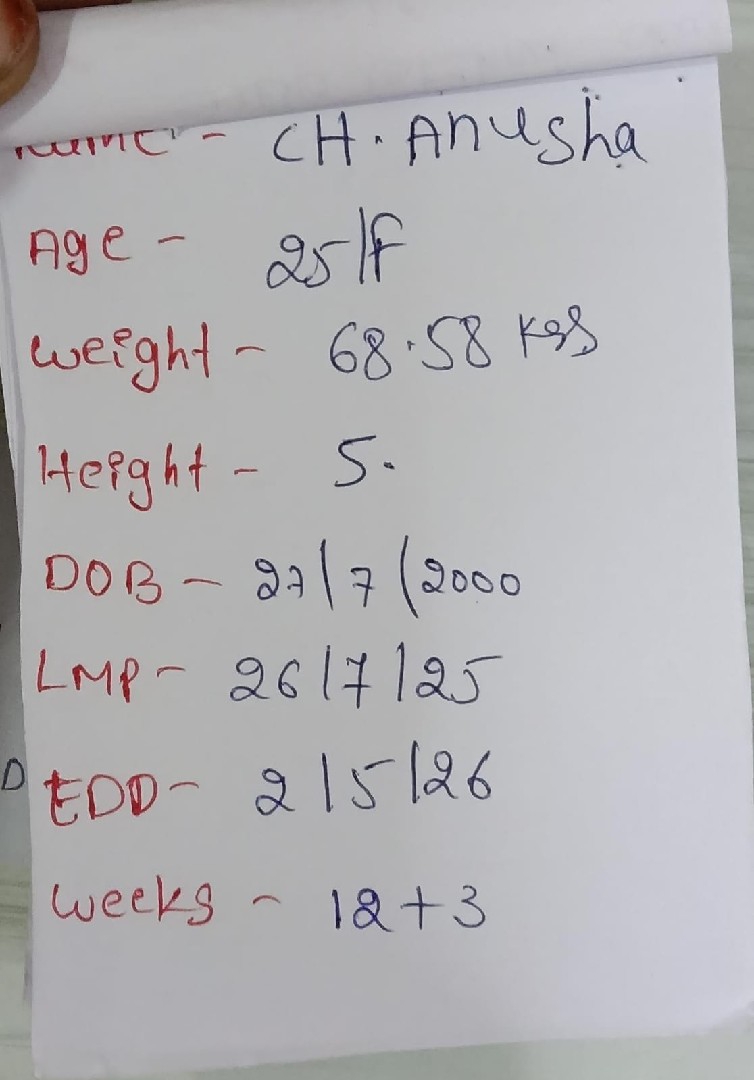 Name - CH. Anusha
Age - 25/F
Weight - 68.58 Kgs
Height - 5.
DOB - 27/7/2000
LMP - 26/7/25
D
EDD - 2/5/26
Weeks - 12+3